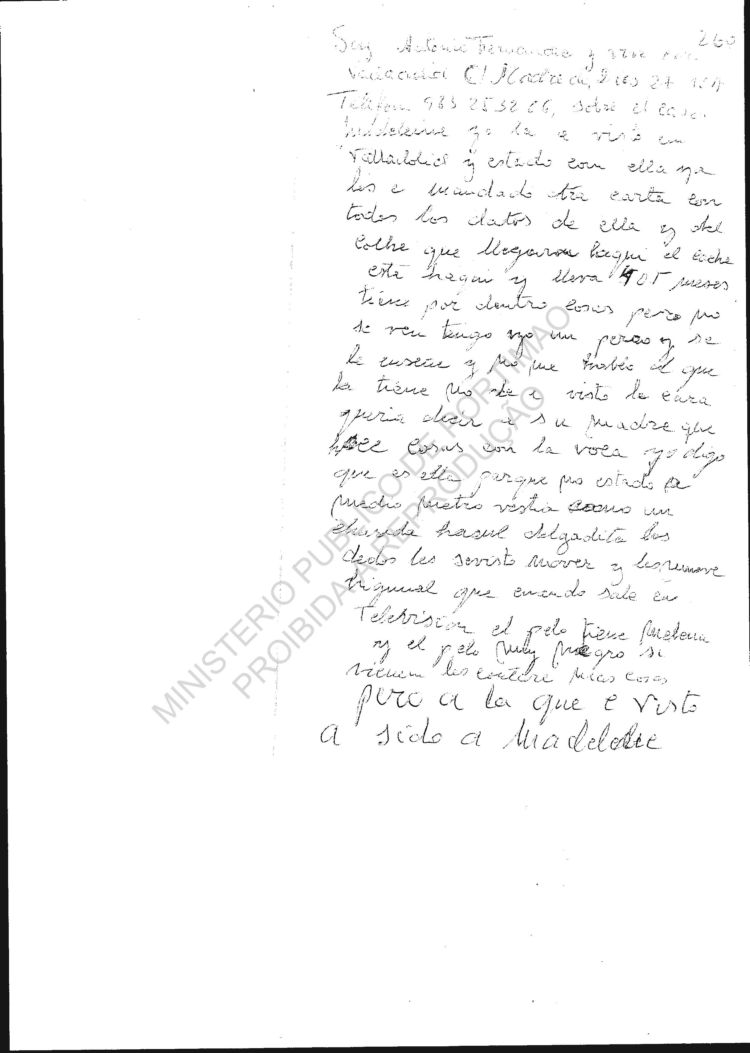 260
Soy Antonio Fernandez y vivo en
Valladolid C/ Madre de Dios 27
Telefon 983 25 52 06, sobre el caso
Maddeleine yo la e visto en
Valladolid y estado con ella ya
les e mandado otra carta con
todos los datos de ella y del
coche que llegaron haqui el coche
esta haqui y lleva 4 o 5 meses
tiene por dentro cosas pero no
se ven tengo yo un perro y se
le enseñe y no me hablo el que
la tiene no le e visto la cara
queria decir a su madre que
hace cosas con la voca yo digo
que es ella parque no estado a
medio metro vestia como un
hasul delgadita los
dedos les mover y les mueve
higual que cuando sale en
Television el pelo tiene melena
y el pelo muy negro si
vienen les contare mas cosas
pero a la que e visto
a sido a Madeleine
MINISTERIO PUBLICO DE PORTIMAO
PROIBIDA A REPRODUÇÃO